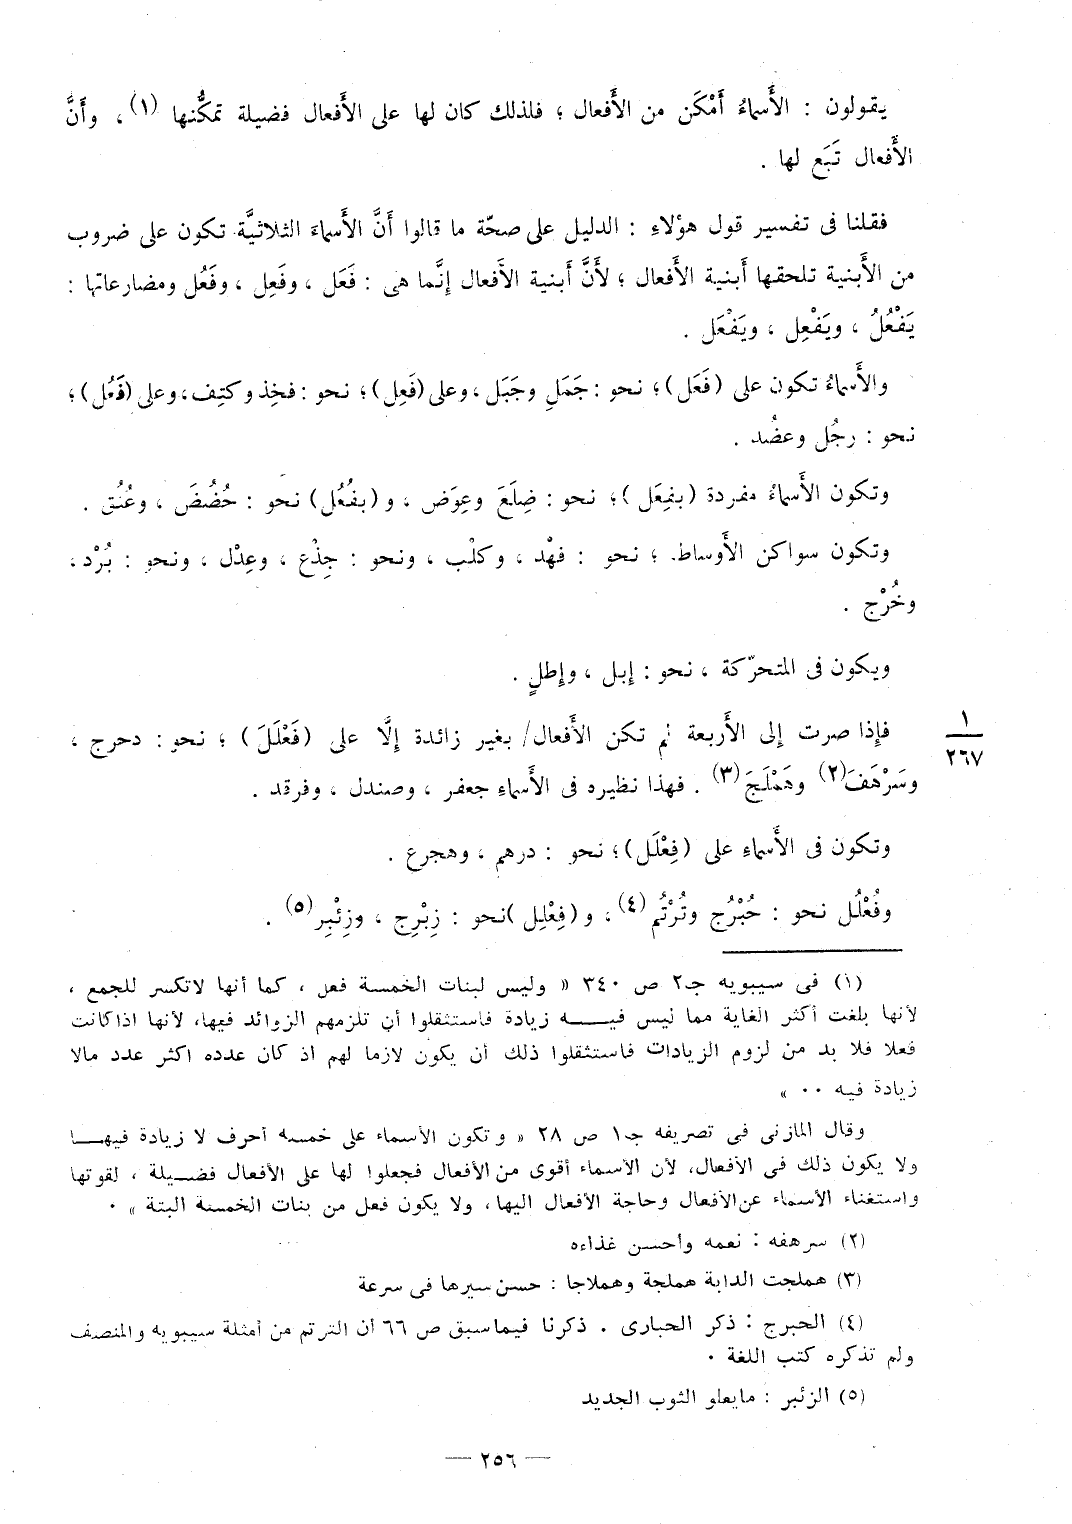 يقولون : الأَسماءُ أَمْكَن من الأَفعال ؛ فلذلك كان لها على الأَفعال فضيلة تمكُّنها (١) ، وأَنَّ
الأَفعال تَبَع لها .
فقلنا فى تفسير قول هؤلاءِ : الدليل على صحّة ما قالوا أَنَّ الأَسماءَ الثلاثيَّة تكون على ضروب
من الأَبنية تلحقها أَبنية الأَفعال ؛ لأَنَّ أَبنية الأَفعال إِنَّما هى : فَعَل ، وفَعِل ، وفَعُل ومضارعاتها :
يَفْعُلُ ، ويَفْعِل ، ويَفْعَل .
والأَسماءُ تكون على (فَعَل)؛ نحو : جَمَلٍ وجَبَل ، وعلى (فَعِل)؛ نحو : فخِذ وكتِف، وعلى (فَعُل)؛
نحو : رجُل وعضُد .
وتكون الأَسماءُ مفردة (بفِعَل)؛ نحو : ضِلَعَ وعِوَض ، و (بفُعُل) نحو : حُضُضَ ، وعُنُق .
وتكون سواكن الأَوساط ؛ نحو : فهْد ، وكلْب ، ونحو : جِذْع ، وعِدْل ، ونحو : بُرْد ،
وخُرْج .
ويكون فى المتحرّكة ، نحو : إِبل ، وإِطلٍ .
فإِذا صرت إِلى الأَربعة لم تكن الأَفعال/ بغير زائدة إِلَّا على (فَعْلَلَ) ؛ نحو : دحرج ،
١
٢٦٧
وسَرْهَفَ(٢) وهَمْلَجَ (٣) . فهذا نظيره فى الأَسماءِ جعفر ، وصندل ، وفرقد .
وتكون فى الأَسماءِ على (فِعْلَل)؛ نحو : درهم ، وهجرع .
وفُعْلُل نحو : حُبْرُج وتُرْتُم (٤) ، و (فِعْلِل) نحو : زِبْرِج ، وزِئْبِر(٥) .
(١) فى سيبويه جـ٢ ص ٣٤٠ « وليس لبنات الخمسة فعل ، كما أنها لاتكسر للجمع ،
لأنها بلغت أكثر الغاية مما ليس فيـــه زيادة فاستثقلوا أن تلزمهم الزوائد فيها، لأنها اذا كانت
فعلا فلا بد من لزوم الزيادات فاستثقلوا ذلك أن يكون لازما لهم اذ كان عدده اكثر عدد مالا
زيادة فيه ٠٠ »
وقال المازنى فى تصريفه جـ١ ص ٢٨ « وتكون الأسماء على خمسه أحرف لا زيادة فيهــا
ولا يكون ذلك فى الأفعال، لأن الأسماء أقوى من الأفعال فجعلوا لها على الأفعال فضـيلة ، لقوتها
واستغناء الأسماء عن الأفعال وحاجة الأفعال اليها، ولا يكون فعل من بنات الخمسة البتة » ٠
(٢) سرهفه : نعمه وأحسن غذاءه
(٣) هملجت الدابة هملجة وهملاجا : حسن سيرها فى سرعة
(٤) الحبرج : ذكر الحبارى . ذكرنا فيماسبق ص ٦٦ أن الترتم من أمثلة سيبويه والمنصف
ولم تذكره كتب اللغة ٠
(٥) الزئبر : مايعلو الثوب الجديد
— ٢٥٦ —